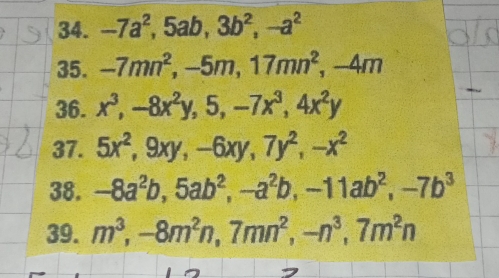 34. −7a², 5ab, 3b², −a²
35. −7mn², −5m, 17mn², −4m
36. x³, −8x²y, 5, −7x³, 4x²y
37. 5x², 9xy, −6xy, 7y², −x²
38. −8a²b, 5ab², −a²b, −11ab², −7b³
39. m³, −8m²n, 7mn², −n³, 7m²n